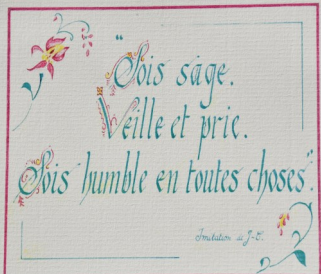 "Sois sage.
Veille et prie.
Sois humble en toutes choses".
Imitation de J-C.